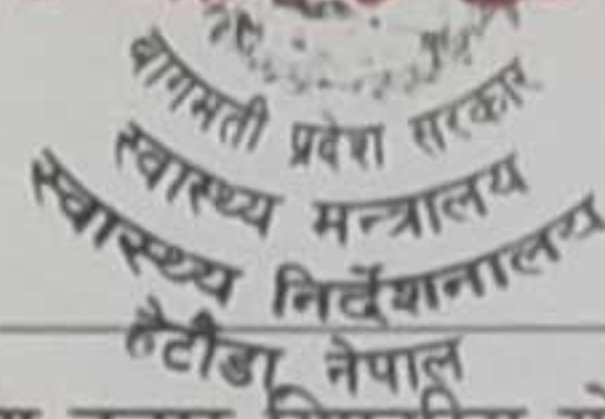 बागमती प्रदेश सरकार
स्वास्थ्य मन्त्रालय
स्वास्थ्य निर्देशनालय
हेटौंडा नेपाल